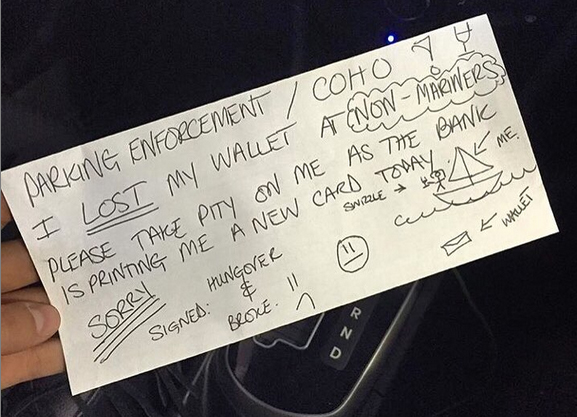 PARKING ENFORCEMENT / COHO
I LOST MY WALLET AT NON-MARINERS
PLEASE TAKE PITY ON ME AS THE BANK
IS PRINTING ME A NEW CARD TODAY.
SWIZZLE →
← ME.
SORRY
← WALLET
SIGNED: HUNGOVER
&
BROKE.
R
N
D